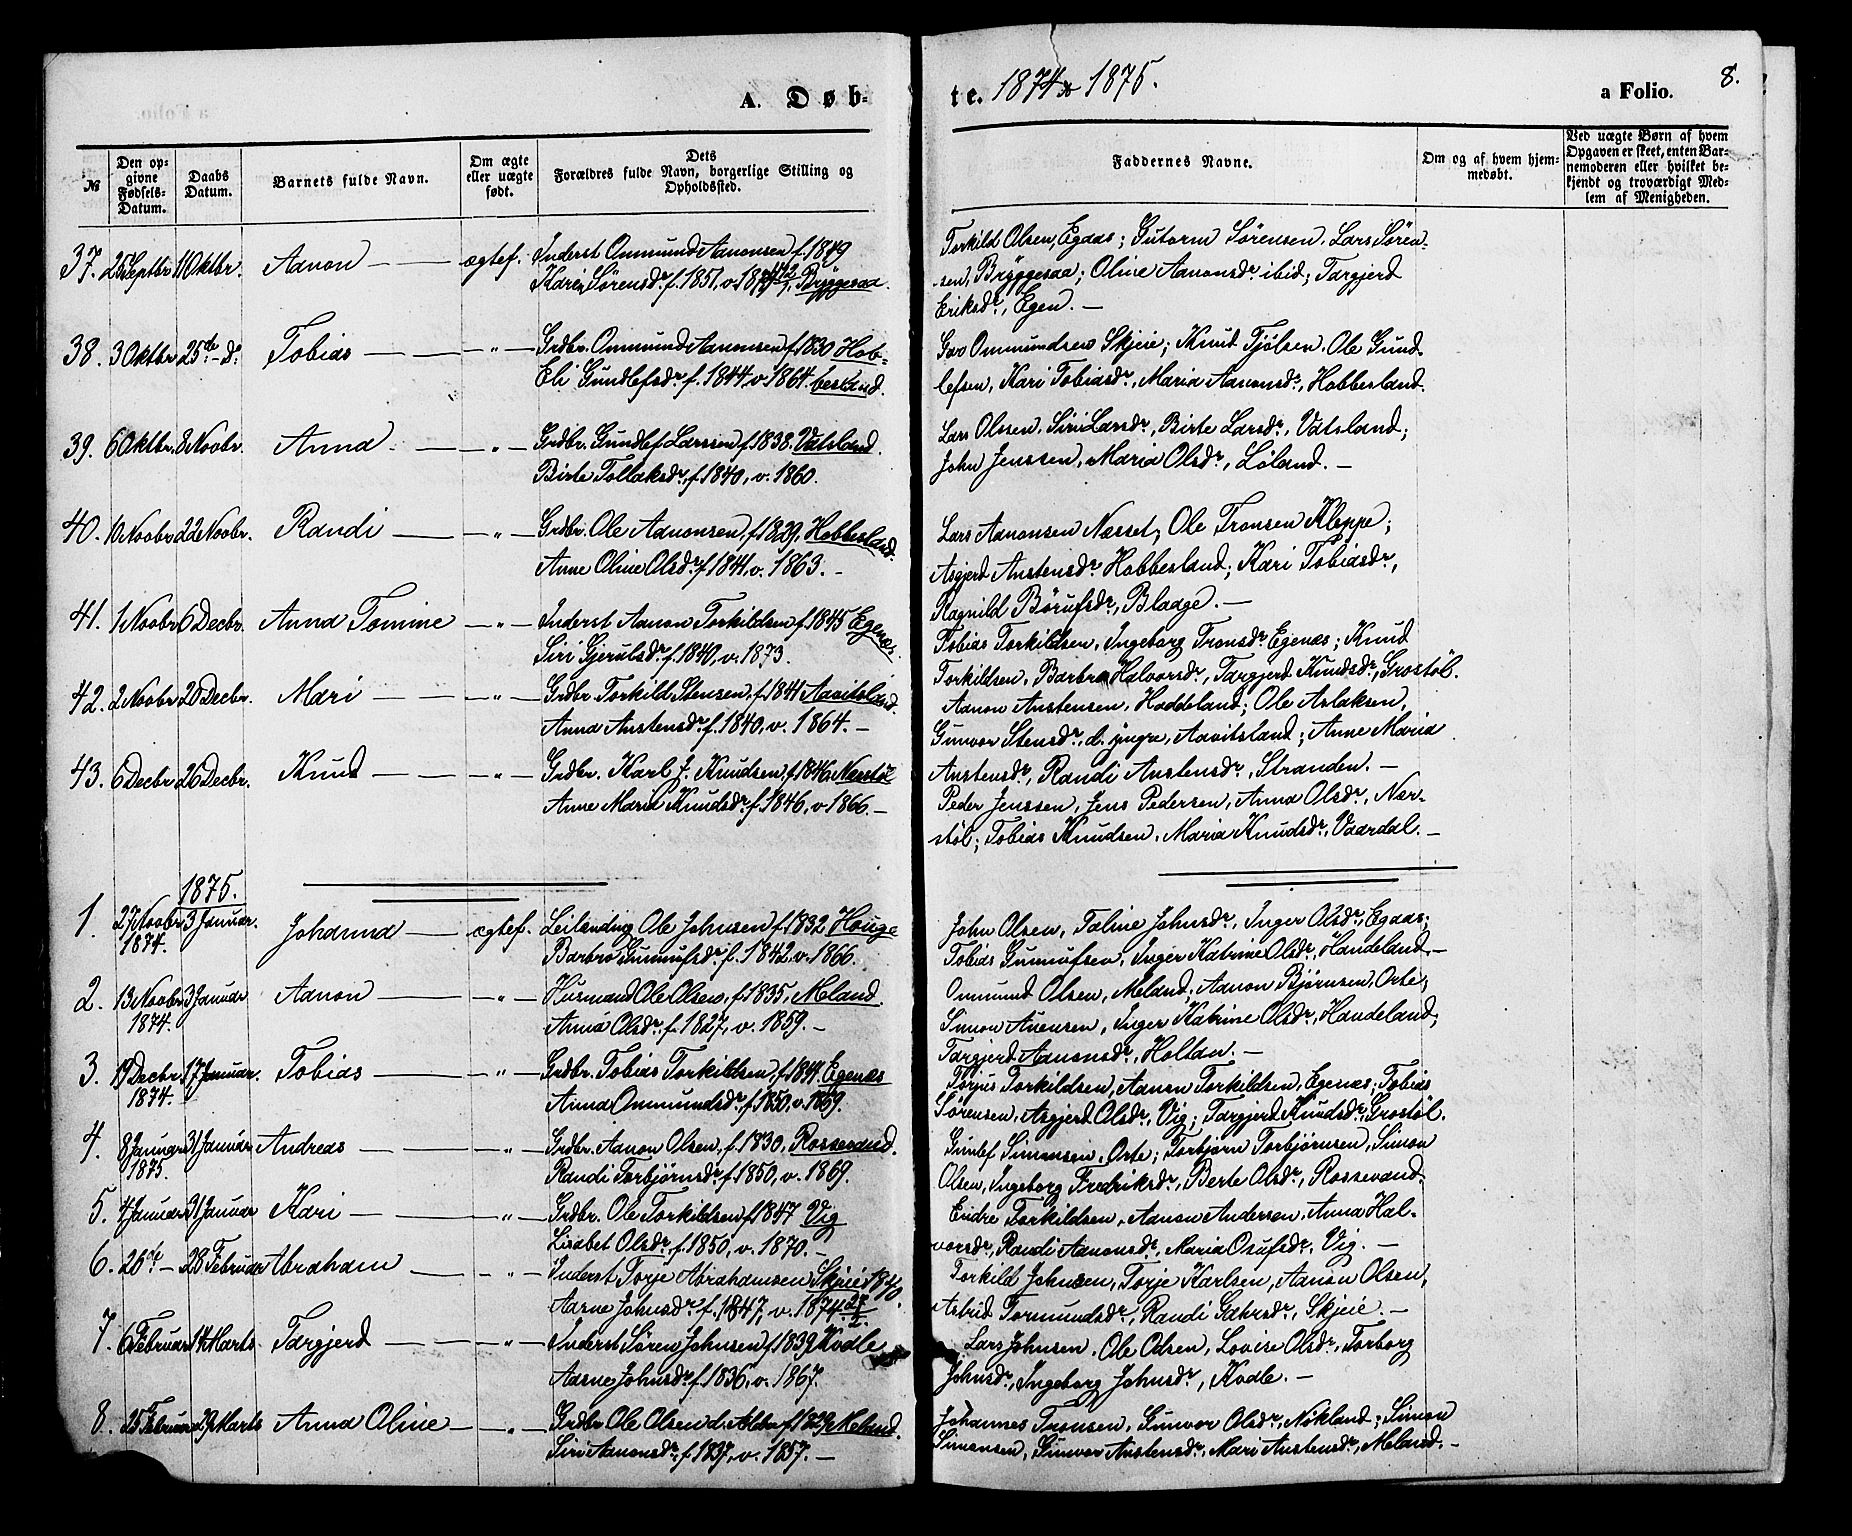 A. Døb-
te. 1874 & 1875.
a Folio. 8.
№
Den op-
givne
Fødsels-
Datum.
Daabs
Datum.
Barnets fulde Navn.
Om ægte
eller uægte
født.
Dets
Forældres fulde Navn, borgerlige Stilling og
Opholdssted.
Faddernes Navne.
Om og af hvem hjem-
medøbt.
Ved uægte Børn af hvem
Opgaven er skeet, enten Bar-
nemoderen eller hvilket be-
kjendt og troværdigt Med-
lem af Menigheden.
37. 25 Septbr. 11 Oktbr. Aanon — ægtef. Inderst Ommund Aanonsen f. 1849
Karin Sørensdr. f. 1851, v. Bryggesaa.
Torkild Olsen, Egaas; Gutorm Sørensen, Lars Søren-
sen, Bryggesaa; Oline Aanonsdr. ibid; Targjerd
Eriksdr., Egen. —
38. 3 Oktbr 25de - D. Tobias — „ — Grdbr. Ommund Aanonsen f. 1830 Hob-
Eli Gundlefsdr. f. 1844 v. 1864. besland.
Ommundsen Skjeie; Knud Tjølsen, Ole Gund-
lefsen, Kari Tobiasdr., Maria Aanonsdr., Hobbesland.
39. 6 Oktbr. 8 Novbr. Anna — „ — Grdbr. Gundlef Larssen f. 1838. Vatsland.
Birte Tollaksdr. f. 1840, v. 1860.
Lars Olssen, Siri Larsdr., Birte Larsdr., Vatsland;
John Jenssen, Maria Olsdr., Løland. —
40. 10 Novbr 22 Novbr. Randi — „ — Grdbr. Ole Aanonsen, f. 1829, Hobbesland.
Anne Oline Olsdr. f. 1841, v. 1863. —
Lars Aanonsen Næsset, Ole Tronsen Kleppe;
Asgjerd Anstensdr. Hobbesland; Kari Tobiasdr.,
Ragnild Børufsdr., Blaage. —
41. 1 Novbr 6 Decbr. Anna Tomine — „ — Inderst Aanon Torkildsen f. 1845 Egenæs.
Siri Gjerulsdr. f. 1840, v. 1873.
Tobias Torkildsen, Ingeborg Tronsdr. Egenæs; Knud
Torkildsen, Barbro Halvorsdr., Targjerd Knudsdr., Grostøl.
42. 2 Novbr 20 Decbr. Mari — „ — Grdbr. Torkild Stensen, f. 1841 Aavitsland.
Anna Anstensdr. f. 1840, v. 1864. —
Aanon Anstensen, Haddeland; Ole Aslaksen,
Gunvor Stensdr., d. yngre, Aavitsland; Anne Maria
Anstensdr., Randi Anstensdr., Stranden. —
43. 6 Decbr 26 Decbr. Knud — „ — Grdbr. Karl J. Knudsen, f. 1846 Nærstøl
Anne Maria Knudsdr. f. 1846, v. 1866. —
Peder Jenssen, Jens Pedersen, Anna Olsdr., Nær-
støl; Tobias Knudsen, Maria Knudsdr., Vaardal. —
1875.
1. 27 Novbr 1874. 3 Januar. Johanna — ægtef. Leilænding Ole Johnsen f. 1832 Houge
Barbro Gunnufsdr. f. 1842 v. 1866.
John Olsen, Taline Johnsdr., Inger Olsdr., Egaas;
Tobias Gunnufsen, Inger Katrine Olsdr., Haudeland. —
2. 13 Novbr 1874. 3 Januar Aanon — „ — Husmand Ole Olsen, f. 1835, Meland.
Anna Olsdr. f. 1827, v. 1859. —
Ommund Olsen, Meland; Aanon Bjørnsen, Orte;
Simon Anensen, Inger Katrine Olsdr., Haudeland;
Targjerd Aanonsdr., Holtan. —
3. 19 Decbr 1874. 17 Januar. Tobias — „ — Grdbr. Tobias Torkildsen, f. 1844. Egenæs
Anna Ommundsdr. f. 1850, v. 1869.
Torjus Torkildsen, Aanon Torkildsen, Egenæs; Tobias
Sørensen, Asgjerd Olsdr., Vig; Targjerd Knudsdr., Grostøl.
4. 8 Januar 1875. 31 Januar Andreas — „ — Grdbr. Aanon Olsen, f. 1830, Rossevand.
Randi Torbjørnsdr. f. 1850, v. 1869.
Gunlef Simonsen, Orte; Torbjørn Torbjørnsen, Simon
Olsen, Ingeborg Fredriksdr., Berte Olsdr., Rossevand.
5. 4 Januar 31 Januar Kari — „ — Grdbr. Ole Torkildsen f. 1847 Vig
Lisabet Olsdr. f. 1850, v. 1870. —
Endre Torkildsen, Aanon Andersen, Anna Hal-
vorsdr., Randi Aanonsdr., Maria Osufsdr., Vig. —
6. 26de — 28 Februar Abraham — „ — Inderst Torje Abrahamsen Skjeie 1840.
Aasne Johnsdr. f. 1847, v. 1874
Torkild Johnsen, Torje Karlsen, Aanon Olsen,
Astrid Tormundsdr., Randi Skjeie. —
7. 6 Februar 14 Marts. Targjerd — „ — Inderst Søren Johnsen f. 1839 Kodle
Aasne Johnsdr. f. 1836, v. 1867.
Lars Johnsen, Ole Odsen, Lovise Olsdr., Torborg
Johnsdr., Ingeborg Johnsdr., Kodle. —
8. 25 Februar 29 Marts Anna Oline — „ — Grdbr. Ole Olsen f. 1829 Meland.
Siri Aanonsdr. f. 1837, v. 1857. —
Johannes Tronsen, Gunvor Olsdr., Nökland; Simon
Simonsen, Gunvor Anstensdr., Mari Anstensdr., Meland. —